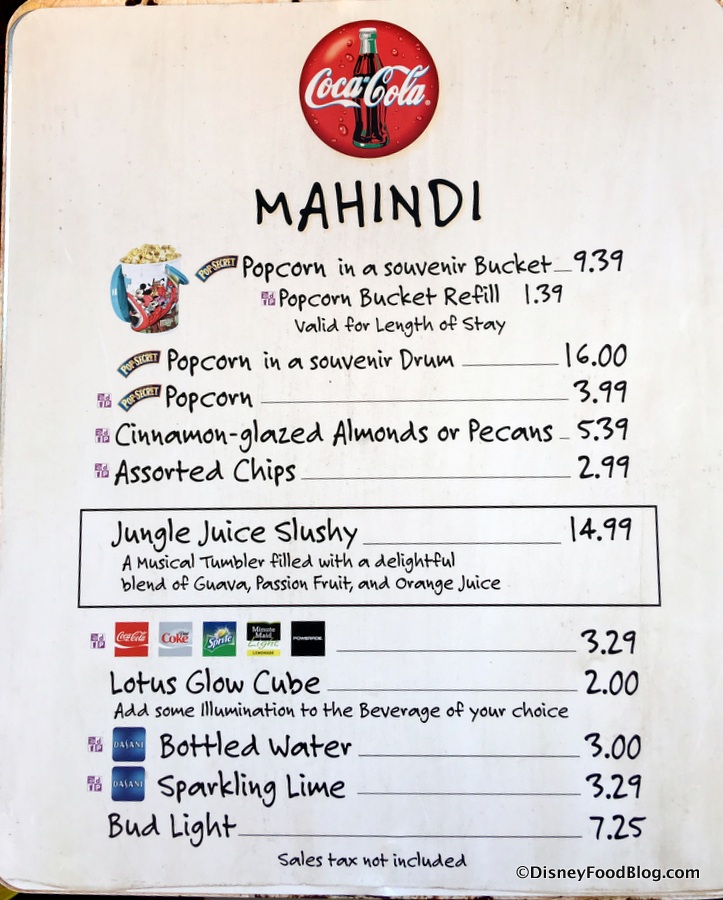 Coca-Cola
MAHINDI
POP·SECRET Popcorn in a souvenir Bucket 9.39
Popcorn Bucket Refill 1.39
Valid for Length of Stay
POP·SECRET Popcorn in a souvenir Drum 16.00
POP·SECRET Popcorn 3.99
Cinnamon-glazed Almonds or Pecans 5.39
Assorted Chips 2.99
Jungle Juice Slushy 14.99
A Musical Tumbler filled with a delightful
blend of Guava, Passion Fruit, and Orange Juice
Coca-Cola Diet Coke Sprite Minute Maid Light LEMONADE POWERADE 3.29
Lotus Glow Cube 2.00
Add some Illumination to the Beverage of your choice
DASANI Bottled Water 3.00
DASANI Sparkling Lime 3.29
Bud Light 7.25
Sales tax not included
©DisneyFoodBlog.com